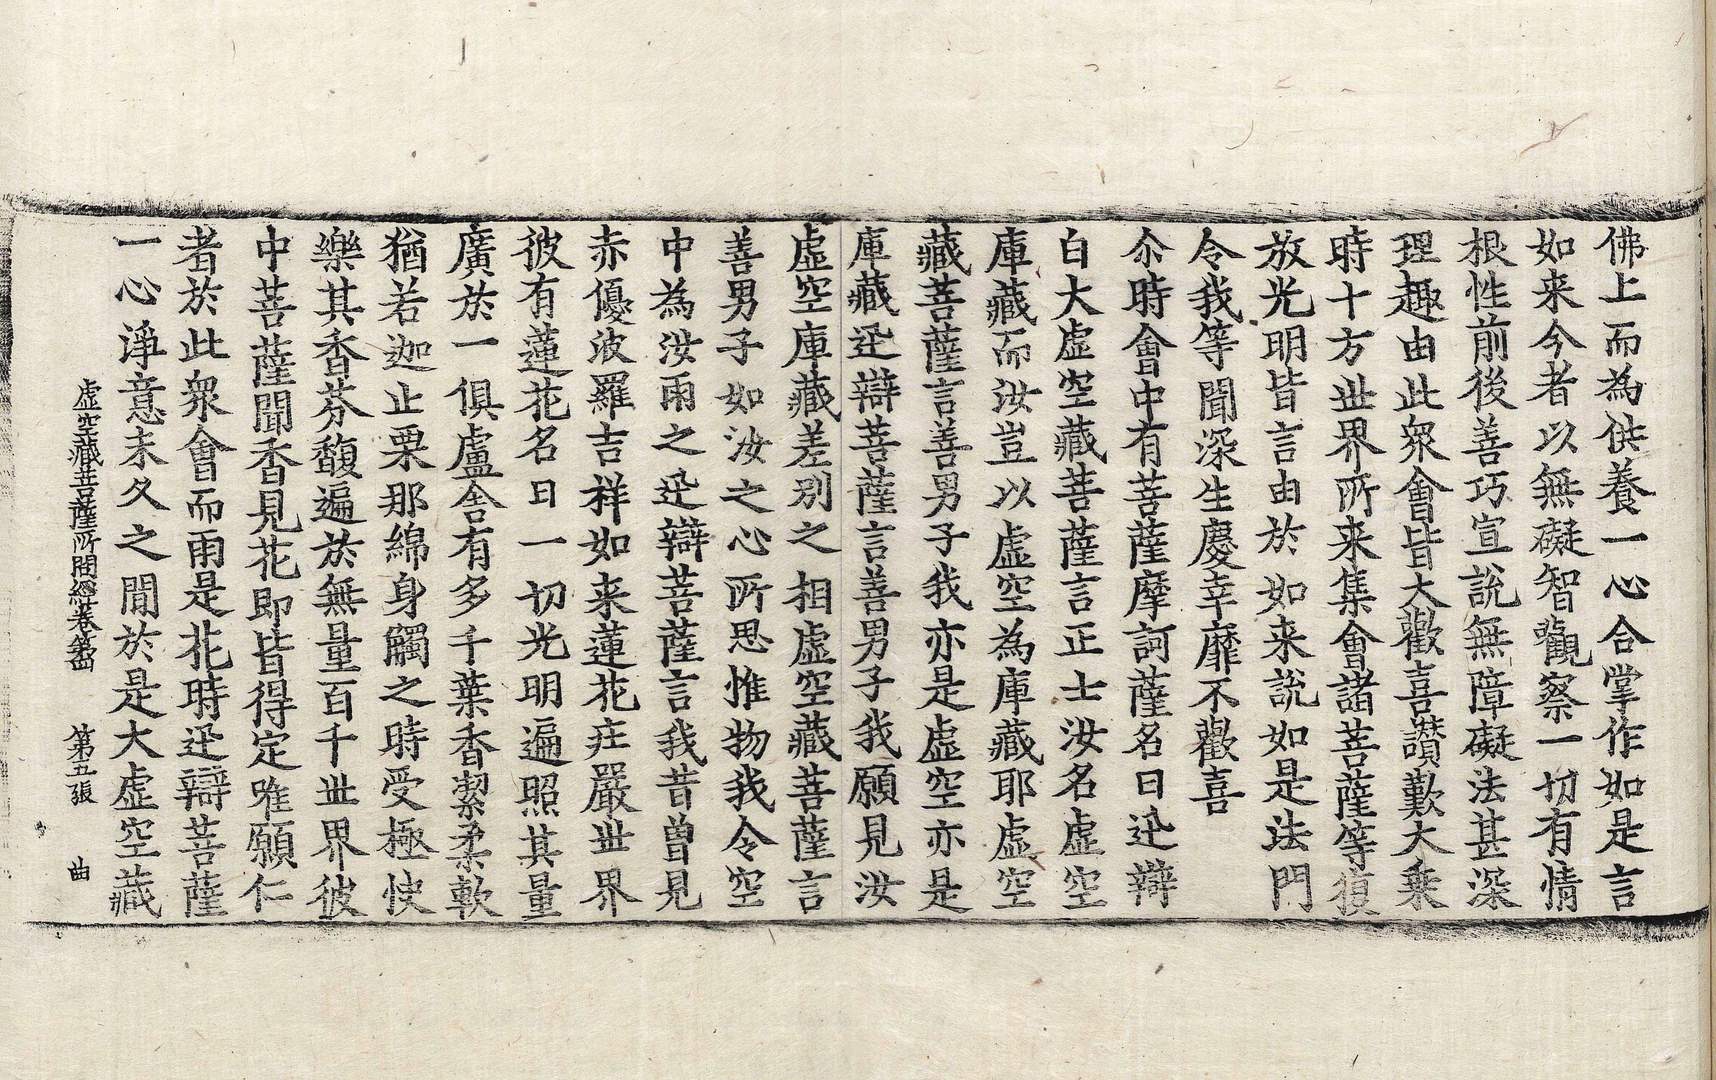 佛上而為供養一心合掌作如是言
如来今者以無礙智觀察一切有情
根性前後善巧宣說無障礙法甚深
理趣由此衆會皆大歡喜讃歎大乗
時十方世界所来集會諸菩薩等頂
放光明皆言由於如来說如是法門
令我等聞深生慶幸靡不歡喜
尒時會中有菩薩摩訶薩名曰迅辯
白大虛空藏菩薩言正士汝名虛空
庫藏而汝豈以虛空為庫藏耶虛空
藏菩薩言善男子我亦是虛空亦是
庫藏迅辯菩薩言善男子我願見汝
虛空庫藏差別之相虛空藏菩薩言
善男子如汝之心所思惟物我令空
中為汝雨之迅辯菩薩言我昔曽見
赤優波羅吉祥如来蓮花庄嚴世界
彼有蓮花名曰一切光明遍照其量
廣於一俱盧舍有多千葉香潔柔軟
猶若迦止栗那綿身觸之時受極快
樂其香芬馥遍於無量百千世界彼
中菩薩聞香見花即皆得定唯願仁
者於此衆會而雨是花時迅辯菩薩
一心淨意未久之閒於是大虛空藏
虛空藏菩薩所問經卷第四 第五張 曲